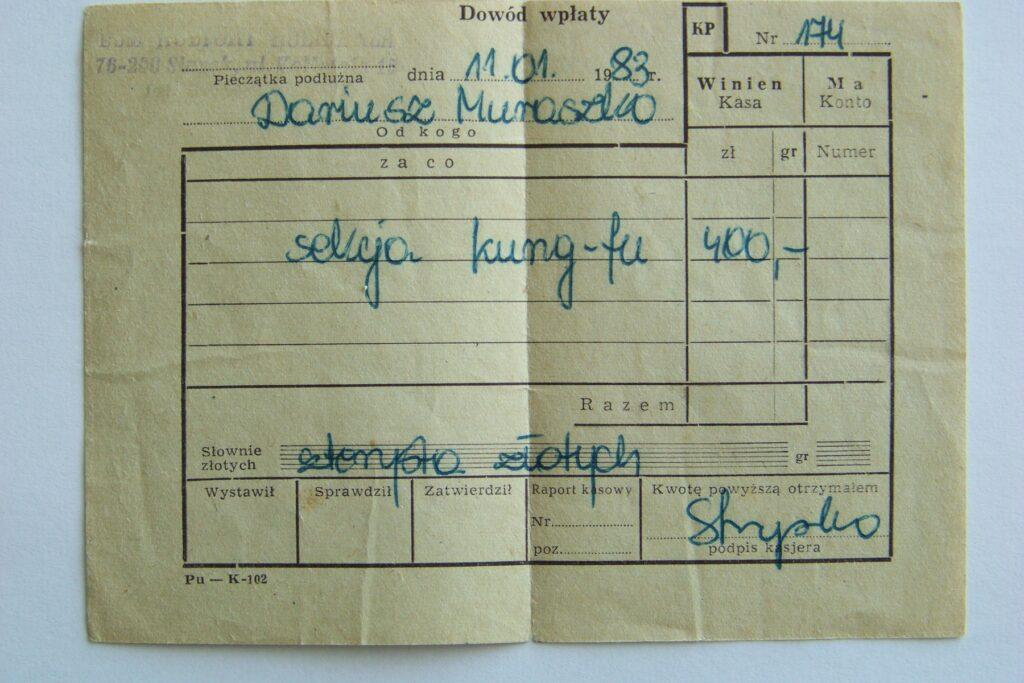 Dowód wpłaty
KP
Nr 174
76-200
Pieczątka podłużna dnia 11.01. 1983 r.
Dariusz Muraszko
Od kogo
Winien Kasa
Ma Konto
za co
zł gr Numer
sekcja kung-fu 400,-
Razem
Słownie złotych czterysta złotych gr
Wystawił Sprawdził Zatwierdził Raport kasowy Kwotę powyższą otrzymałem
Nr
poz.
podpis kasjera
Pu — K-102